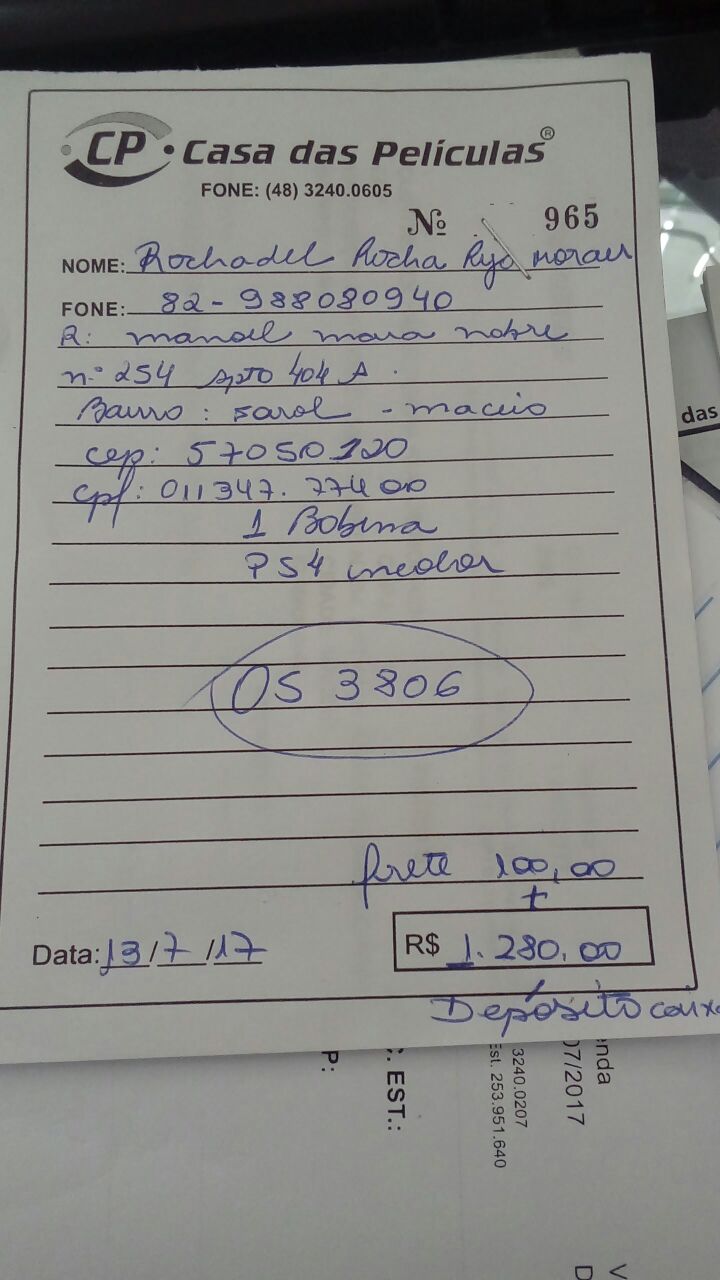 CP • Casa das Películas®
FONE: (48) 3240.0605
Nº 965
NOME: Rochadel Rocha Rijo moraes
FONE: 82-988080940
R: manoel maia nobre
n.º 254 apto 404 A.
Bairro: Farol - maceio
cep: 57050120
cpf: 011347.77400
1 Bobina
PS4 incolor
OS 3806
frete 100,00
+
Data: 13/7/17 R$ 1.280,00
Depósito caixa
das
enda
07/2017
3240.0207
Est. 253.951.640
C. EST.:
P: